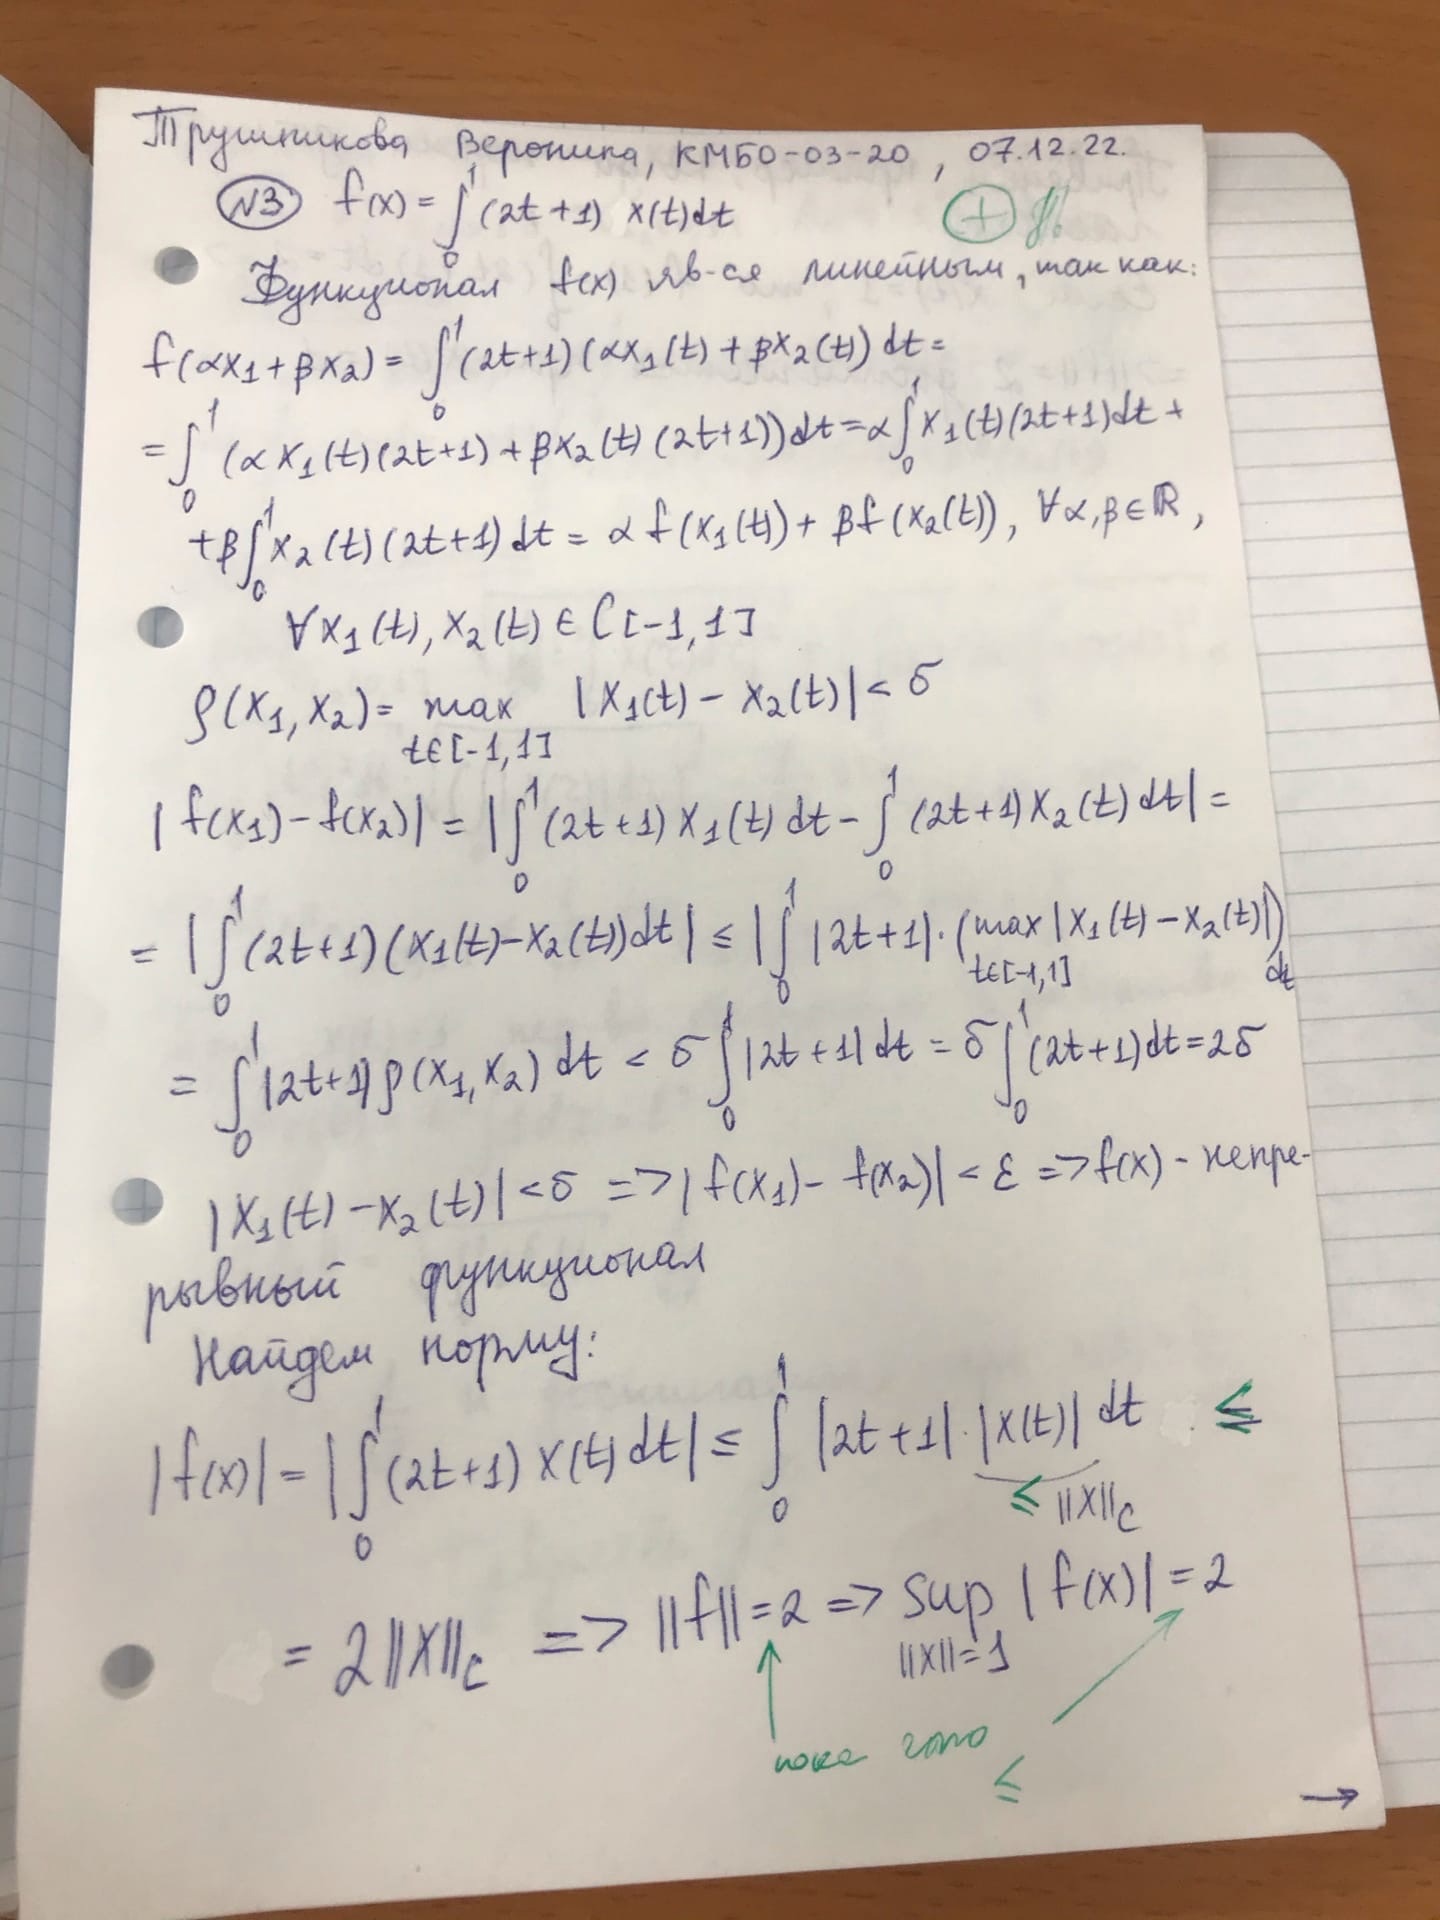 Трушникова Вероника, КМБО-03-20, 07.12.22.
№3 f(x) = ∫₀¹ (2t+1) x(t)dt +
Функционал f(x) яв-ся линейным, так как:
f(αx₁+βx₂) = ∫₀¹ (2t+1)(αx₁(t)+βx₂(t))dt =
= ∫₀¹ (αx₁(t)(2t+1)+βx₂(t)(2t+1))dt = α∫₀¹ x₁(t)(2t+1)dt +
+β∫₀¹ x₂(t)(2t+1)dt = αf(x₁(t)) + βf(x₂(t)), ∀α,β∈ℝ,
∀x₁(t), x₂(t) ∈ C[-1,1]
ρ(x₁,x₂) = max |x₁(t) - x₂(t)| < δ
t∈[-1,1]
|f(x₁)-f(x₂)| = |∫₀¹ (2t+1)x₁(t)dt - ∫₀¹ (2t+1)x₂(t)dt| =
= |∫₀¹ (2t+1)(x₁(t)-x₂(t))dt| ≤ |∫₀¹ |2t+1|·(max |x₁(t)-x₂(t)|)dt
t∈[-1,1]
= ∫₀¹ |2t+1|ρ(x₁,x₂)dt < δ∫₀¹ |2t+1|dt = δ∫₀¹ (2t+1)dt = 2δ
|x₁(t)-x₂(t)| < δ => |f(x₁)-f(x₂)| < ε => f(x) - непре-
рывный функционал
Найдем норму:
|f(x)| = |∫₀¹ (2t+1)x(t)dt| ≤ ∫₀¹ |2t+1|·|x(t)|dt ≤
≤ ||x||_C
= 2||x||_C => ||f|| = 2 => sup |f(x)| = 2
||x||=1
пока что
≤
→